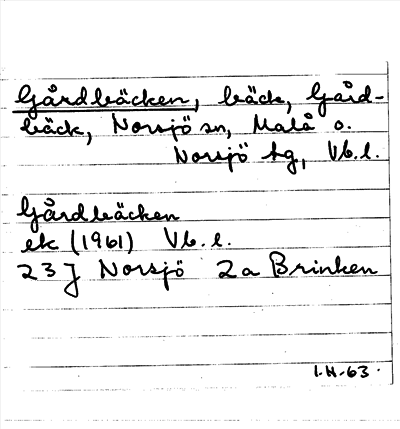 Gårdbäcken, bäck, Gård-
bäck, Norsjö sn, Malå o.
Norsjö tg, Vb.l.
Gårdbäcken
ek (1961) Vb. l.
23J Norsjö 2a Brinken
I.H-63.